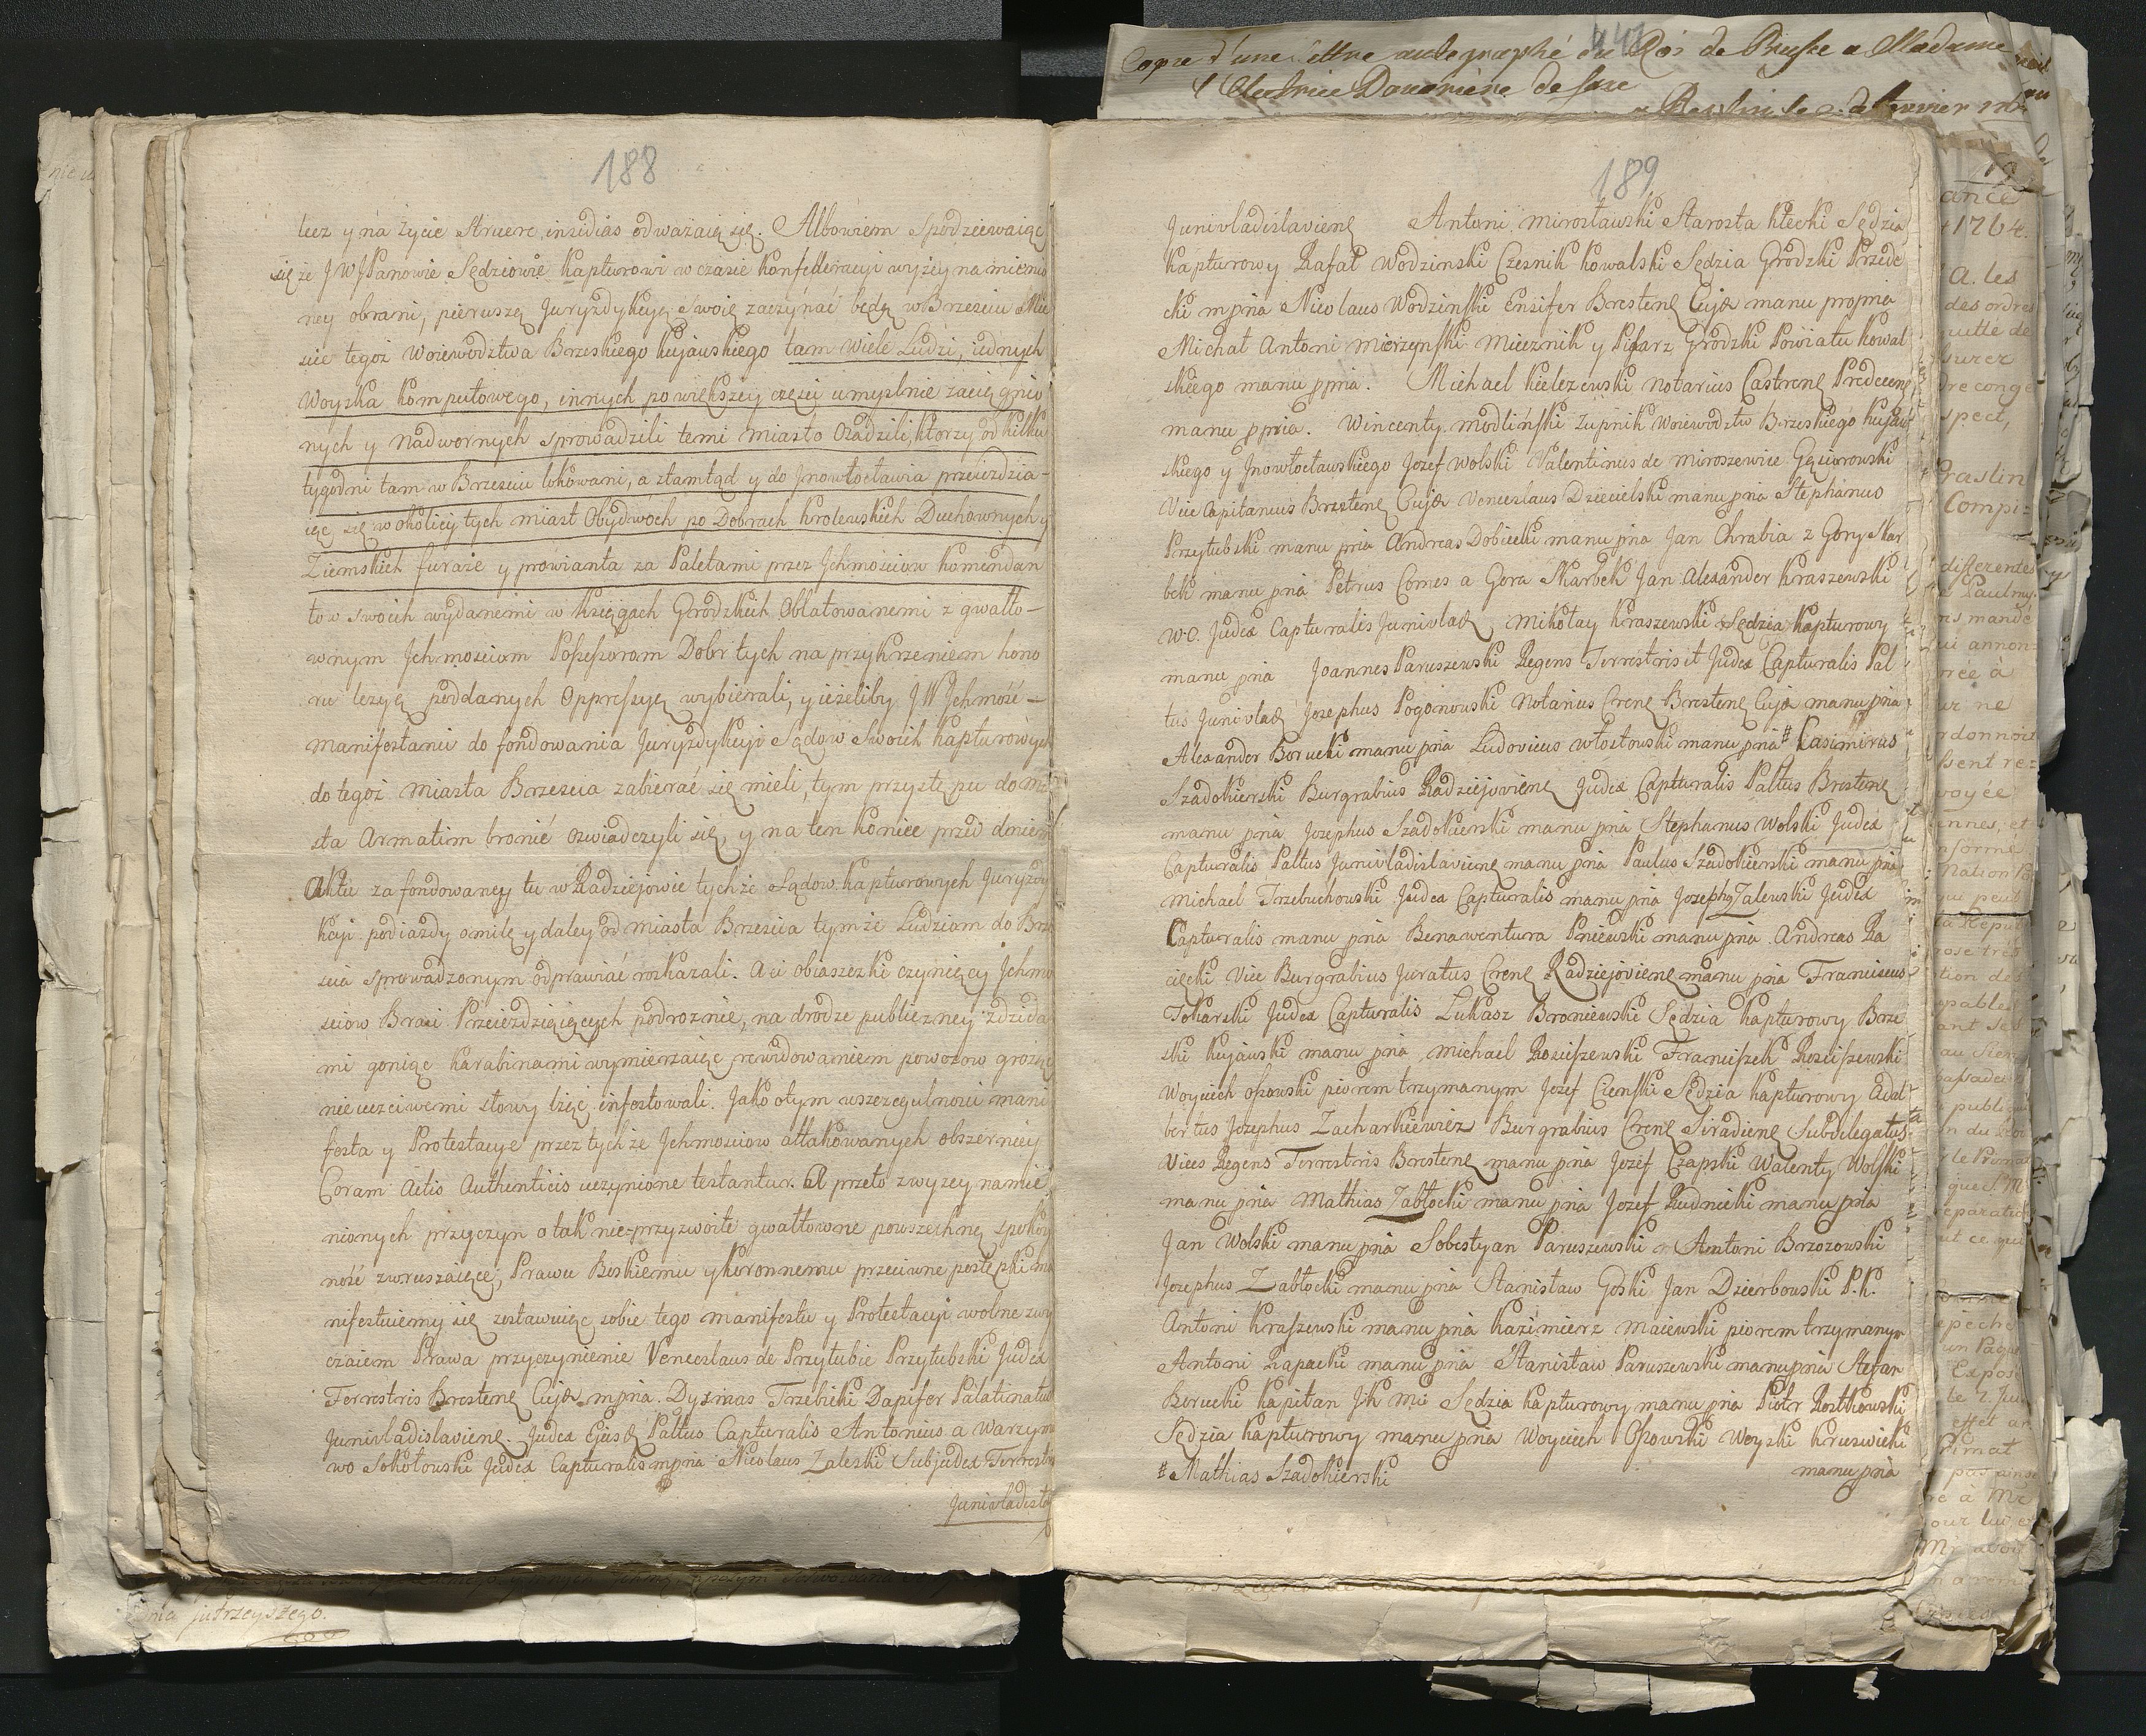 188
lecz y na życie struere insidias odważaią się. Albowiem spodziewaiąc
się że JWJPanowie Sędziowie Kapturowi w czasie Konfederacyi wyżey namienio
ney obrani, pierwszą Juryzdykcyą swoię zaczynać będą w Brzesciu Mie
scie tegoż Woiewodztwa Brzeskiego Kujawskiego tam wiele Ludzi, iednych
Woyska Komputowego, innych po większey części umyslnie zaciągnio
nych y Nadwornych sprowadzili temi Miasto Osadzili, ktorzy od kilku
tygodni tam w Brzesciu lokowani, a ztamtąd y do Jnowłocławia przeiezdza-
iąc się w okolicy tych miast Obydwoch po Dobrach Krolewskich Duchownych y
Ziemskich furaże y prowianta za Paletami przez Jchmosciow Komendan
tow swoich wydanemi w Xięgach Grodzkich Oblatowanemi z gwałto-
wnym Jchmosciom Possessorom Dobr tych naprzykrzeniem hono
ru lezyą poddanych Oppressyą wybierali, y ieżeliby JW Jchmość-
Manifestanci do fondowania Juryzdykcyi Sądow Swoich Kapturowych
do tegoż Miasta Brzescia zabierać się mieli, tym przystępu do Mia
sta Armatim bronić oswiadczyli się, y na ten koniec przed dniem
Aktu zafondowaney tu w Radziejowie tychże Sądow Kapturowych Juryzdy
kcyi podiazdy o milę y daley od miasta Brzescia tymże Ludziom do Brze
scia sprowadzonym odprawiać rozkazali. A ci obiaszczki czyniący Jchmo
sciow Braci Przeieżdzaiących podrożnie, na drodze publiczney zdzida
mi goniąc karabinami wymierzaiąc rewidowaniem powozow grożąc
nieuczciwemi słowy lżąc infestowali. Jako o tym w szczegulnosci mani
festa y Protestacye przez tychże Jchmosciow attakowanych obszerniey
Coram Actis Authenticis uczynione testantur. A przeto z wyzey namie
nionych przyczyn o tak nie-przyzwoite gwałtowne powszechną spokoy
ność zwruszaiące, Prawu Boskiemu y Koronnemu przeciwne postępki ma
nifestuiemy się zostawuiąc sobie tego manifestu y Protestacyi wolne zwy
czaiem Prawa przyczynienie Venceslaus de Przyłubie Przyłubski Judex
Terrestris Brestenę Cujæ mpria. Dyzmas Trzebicki Dapifer Palatinatus
Junivladislavienę. Judex Ejusq Pattus Capturalis Antonius a Warzym
wo Sokołowski Judex Capturalis mpria Nicolaus Zaleski Subjudex Terrestris
Junivladisla
189
Junivladislavienę Antoni Mirosławski Starosta Klecki Sędzia
Kapturowy Rafał Wodzinski Czesnik Kowalski Sędzia Grodzki Przede
cki mpria Nicolaus Wodzinski Ensifer Brestenę Cujæ manu propria
Michał Antoni Mierzynski Miecznik y Pisarz Grodzki Powiatu Kowal
skiego manu ppria. Michael Kiełczewski Notarius Castrenę Predecenę
manu ppria. Wincenty Modliński Żupnik Woiewodztw Brzeskiego Kujaw
skiego y Jnowłocławskiego Jozef Wolski Valentinus de Miroszewice Gąsiorowski
Vice Capitaneus Brestenę Cujæ Venceslaus Dziecielski manu pria Stephanus
Przyłubski manu pria Andreas Dobiecki manu pria Jan Chrabia z Gory Skar
bek manu pria Petrus Comes a Gora Skarbek Jan Alexander Kraszewski
W.C. Judex Capturalis Junivladę, Mikołay Kraszewski Sędzia Kapturowy
manu pria Joannes Paruszewski Regens Terrestris et Judex Capturalis Pal
tus Junivladę Josephus Pogonowski Notarius Crenę Brestenę Cujæ manu pria
Alexander Borucki manu pria Ludovicus Włostowski manu pria # Casimirus
Szadokierski Burgrabius Radziejovienę Judex Capturalis Paltus Brestenę
manu pria Josephus Szadokierski manu pria Stephanus Wolski Judex
Capturalis Paltus Junivladislavienę manu pria Paulus Szadokierski manu pria
Michael Trzebuchowski Judex Capturalis manu pria Josephg Zalewski Judex
Capturalis manu pria Benawentura Pniewski manu pria Andreas Ra
ciecki Vice Burgrabius Juratus Crenę Radziejovienę manu pria Franciscus
Tokarski Judex Capturalis Łukasz Broniewski Sędzia Kapturowy Brze
ski Kujawski manu pria Michael Rosciszewski Franciszek Rosciszewski
Woyciech Ossowski piorem trzymanym Jozef Cienski Sędzia Kapturowy Adal
bertus Josephus Zacharkiewicz Burgrabius Crenę Siradienę Subdelegatus
Vices Regens Terrestris Brestenę manu pria Jozef Czapski Walenty Wolski
manu pria Mathias Zabłocki manu pria Jozef Rudnicki manu pria
Jan Wolski manu pria Sobestyan Paruszewski Antoni Brzozowski
Josephus Zabłocki manu pria Stanisław Goski Jan Dzierbowski P.K.
Antoni Kraszewski manu pria Kazimierz Maiewski piorem trzymanym
Antoni Rapacki manu pria Stanisław Paruszewski manu pria Stefan
Borucki Kapitan JK Mci Sędzia Kapturowy manu pria Piotr Rostkowski
Sędzia Kapturowy manu pria Woyciech Ossowski Woyski Kruswicki
# Mathias Szadokierski manu pria
Copie d'une Lettre autographé du Roi de Prusse a Madame
l'Electrice Douariere de Saxe
nia jutrzeyszego.
1764.
A. les
des ordres
Praslin
Compi-
differentes